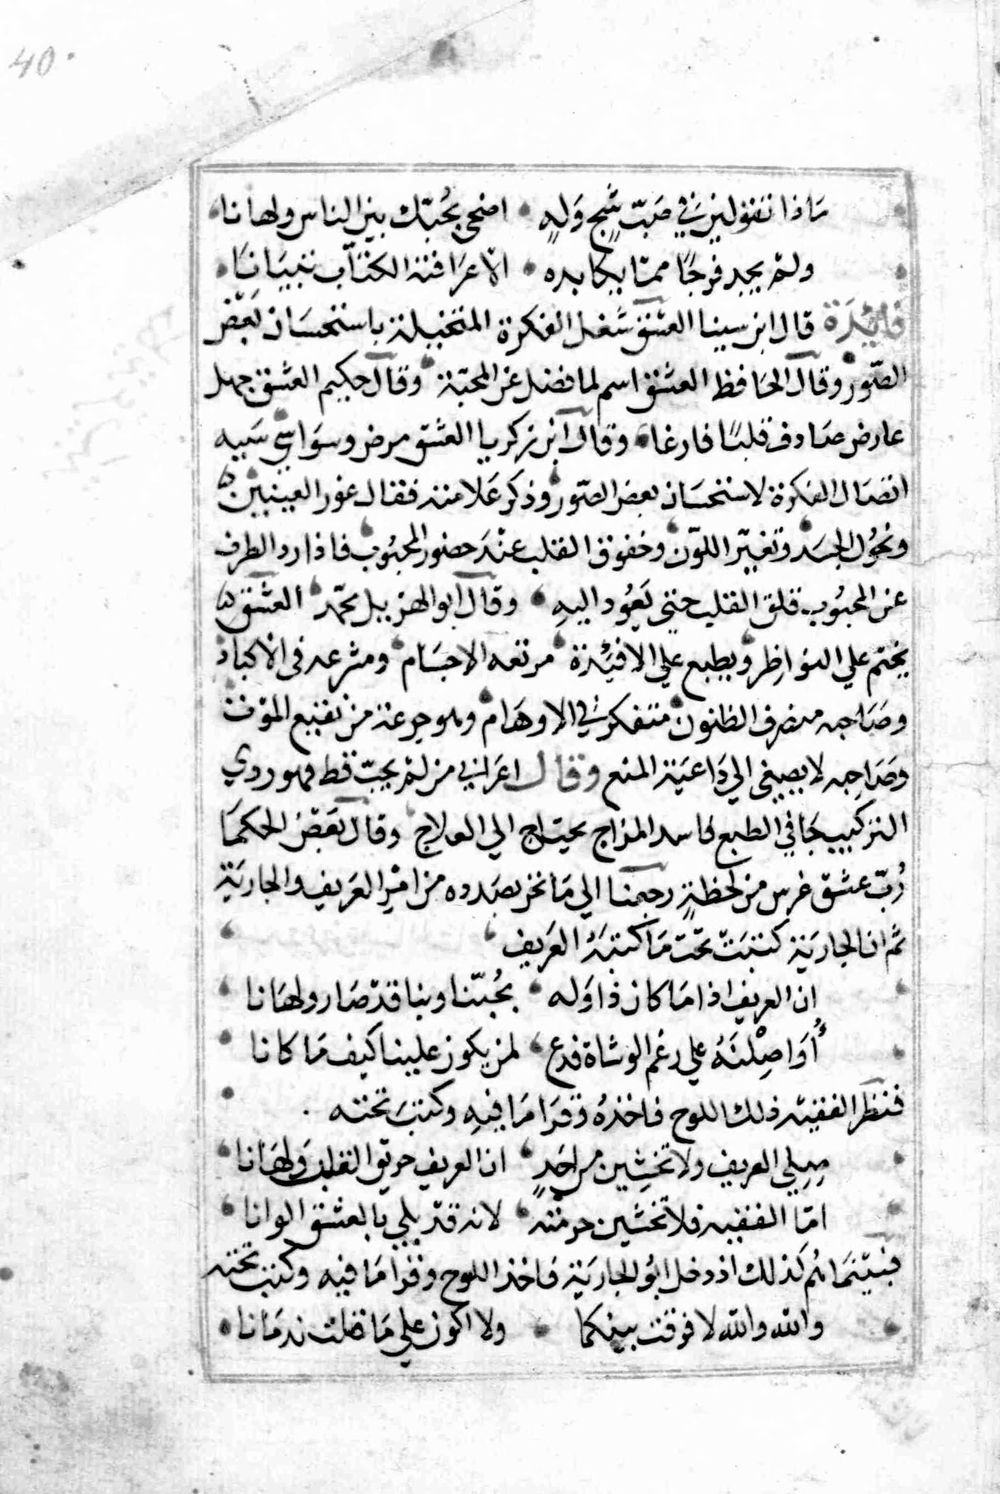 40
مَاذا تقولين في صَبّ شَجٍ وَلهٍ اضحى بحُبّك بين الناس ولهانا
ولم يجد فرجًا ممّا يكابده الّا عرافته الكتّاب تبيَانَا
فايئدَة قال ابن سينا العشق شغل الفكرة المتخيلة باستحسان بَعْض
الصّور وقال الحَافظ العشق اسم لما فضل عن المحبّة وقال حكيم العشق جهل
عارض صَادف قلبًا فارغا وقال ابن زكريا العشق مرض وسوَاسي سَببه
اتصَال الفكرة لاستحسَان بعض الصّور وذكر عَلامته فقال غور العينين
ونحُول الجسَد وتغيّر اللوْن وخفوق القلب عنْدَ حضور المحبُوب فاذا رد الطرف
عن المحبُوب قلق القلب حتى يَعُود اليهِ وقال ابو الهزيل محمّد العشْق
يختم علي النواظر ويطبع علي الافئِدة مرتعه الاجسَام ومشرعه فى الاكباد
وصَاحبه متصرف الظنون متفكر في الاوهَام وهو جرعة من نقيع الموْت
وصَاحبه لا يصغى الي دَاعيَة المنع وقال اعرَابي من لم يحبّ قط فهو ردي
التركيب جَافي الطبع فاسد المزاج يحتاج الي العلاج وقال بَعْض الحكمَا
رُبّ عشق غرس من لحظةٍ رجعنا الي مَا نحن بصَدده من امْر العَريف والجاريَة
ثم ان الجاريَة كتبَتْ تحْتَ مَا كتبَهُ العَريف
ان العريف اذا مَا كان ذا وَله بحُبّنا وبنا قدْ صَار ولهَانا
أُوَاصِلَنّهُ علي رغم الوشاة فدع لمن يكون علينا كيف مَا كانا
فنظر الفقيه ذلك اللوح فاخذهُ وقرَا مَا فيهِ وكتبَ تحته
صِلِي العريف ولا تخشين من احَدٍ ان العريف حريق القلب وَلهَانا
امّا الفقيه فلا تخشين حرمته لانه قدْ بلي بالعشق الوانا
فبيْنمَا هُم كذلك اذ دخل ابُو الجاريَة فاخذ اللوح وقرَا مَا فيه وكتبَ تحته
والله والله لا فرقت بينكما ولا اكون علي مَا قلت ندمَانا